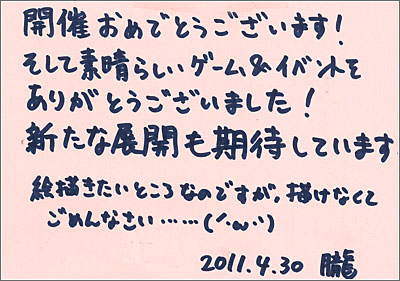 開催おめでとうございます!
そして素晴らしいゲーム&イベントを
ありがとうございました!
新たな展開も期待しています
絵描きたいところなのですが、描けなくて
ごめんなさい……(´･ω･`)
2011.4.30 朧